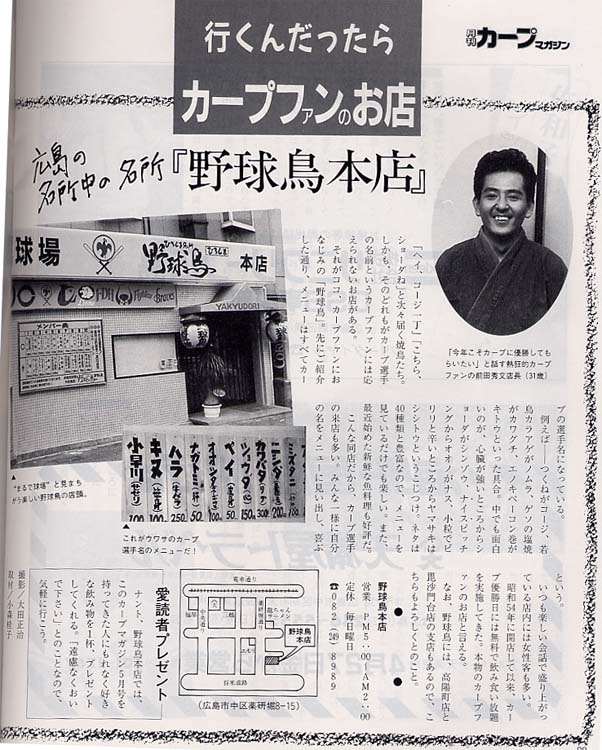 月刊 カープマガジン
行くんだったら
カープファンのお店
広島の
名所中の名所
『野球鳥本店』
球場
野球鳥
ひろしま
本店
メンバー表
YAKYUDORI
「ヘイ、コージ一丁」「こちら、
ショーダね」と次々届く焼鳥たち。
しかも、そのどれもがカープ選手
の名前というカープファンには応
えられないお店がある。
それがココ、カープファンにお
なじみの「野球鳥」。先にご紹介
した通り、メニューはすべてカー
「今年こそカープに優勝しても
らいたい」と話す熱狂的カープ
ファンの前田秀文店長(31歳)
プの選手名になっている。
例えば――つくねがコージ、若
鳥カラアゲがノムラ、ゲソの塩焼
がカワグチ、エノキベーコン巻が
キトウといった具合。中でも面白
いのが、心臓が強いところからシ
ョーダがシンゾウ、ナイスピッチ
ングからオオノがナス、小粒でピ
リリと辛いところからヤマサキは
シシトウというこじつけ。ネタは
40種類と豊富なので、メニューを
見ているだけでも楽しい。また、
最近始めた新鮮な魚料理も好評だ。
こんな同店だから、カープ選手
の来店も多い。みんな一様に自分
の名をメニューに見い出し、喜ぶ
という。
いつも楽しい会話で盛り上がっ
ている店内には女性客も多い。
昭和54年に開店して以来、カー
プ優勝日には無料で飲み食い放題
を実施してきた。本物のカープフ
ァンのお店と言える。
なお、野球鳥には、高陽町店と
毘沙門台店の支店もあるので、こ
ちらもよろしくとのこと。
“まるで球場”と見まち
がう楽しい野球鳥の店頭。
小早川
キヌ
ハラ
ナガトミ
ペイ
ショウダ
カワバタ
これがウワサのカープ
選手名のメニューだ!
野球鳥本店
営業 PM5:00〜AM2:00
定休 毎日曜日
☎082-249-8989
電車通り
福屋
中央通り
三越
薬研堀通り
龍ちゃん
ラーメン
野球鳥
本店
エモリ
百米道路
(広島市中区薬研堀8-15)
愛読者プレゼント
ナント、野球鳥本店では、
このカープマガジン5月号を
持ってきた人にもれなく好き
な飲み物を1杯、プレゼント
してくれる。「遠慮なくおい
で下さい」とのことなので、
気軽に行こう。
撮影/大田正治
取材/小森桂子